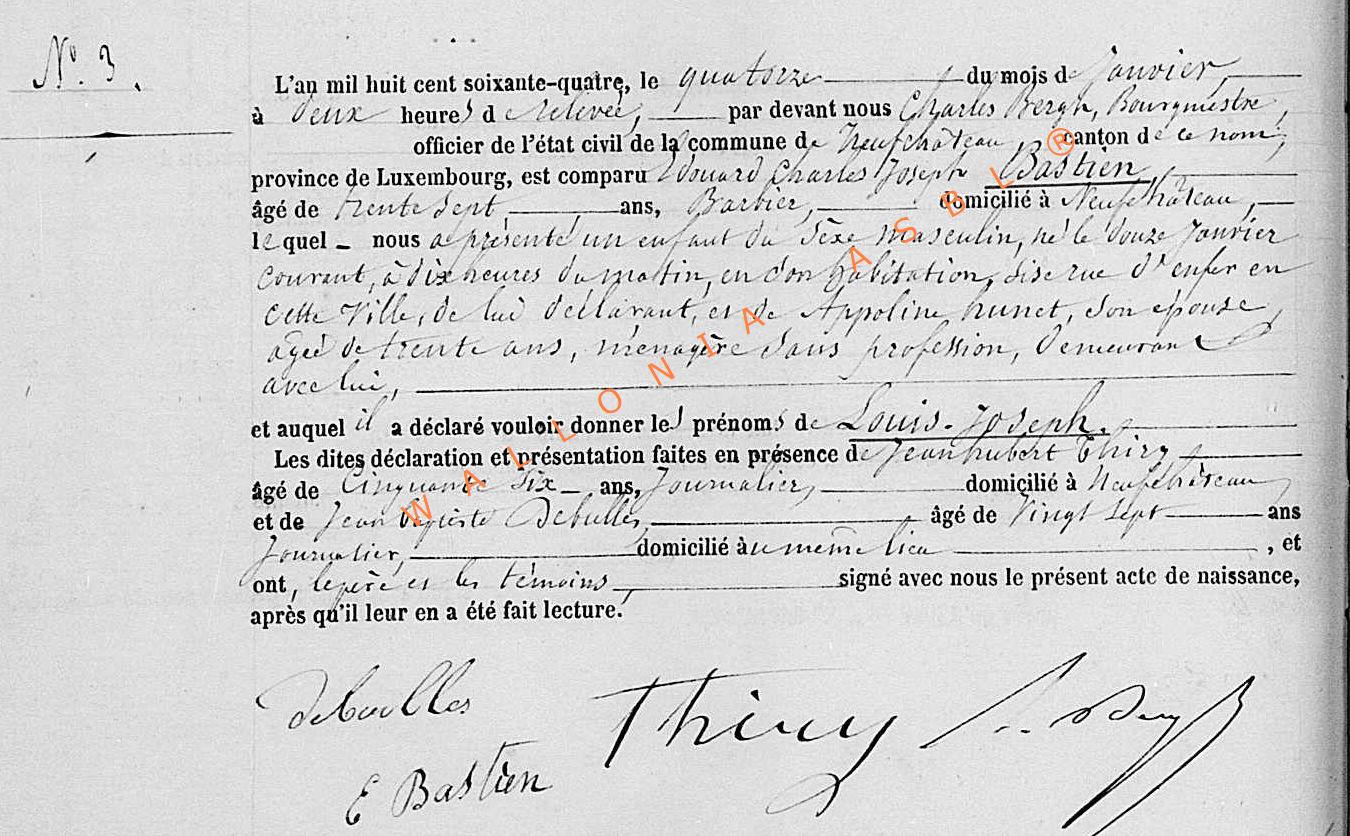 N° 3.
L'an mil huit cent soixante-quatre, le quatorze du mois de Janvier,
à deux heures de relevée, par devant nous Charles Bergh, Bourgmestre,
officier de l'état civil de la commune de Neufchâteau, canton de ce nom,
province de Luxembourg, est comparu Edouard Charles Joseph Bastien,
âgé de trente sept, ans, Barbier, domicilié à Neufchâteau,
lequel nous a présenté un enfant du Sexe masculin, né le douze Janvier
courant, à dix heures du matin, en son habitation, sise rue d'enfer en
cette Ville, de lui déclarant, et de Appoline hunet, son épouse,
agée de trente ans, ménagère sans profession, demeurant
avec lui,
et auquel il a déclaré vouloir donner les prénoms de Louis-Joseph.
Les dites déclaration et présentation faites en présence de Jean hubert Thiry
âgé de Cinquante Six ans, Journalier, domicilié à Neufchâteau,
et de Jean Baptiste Debulles, âgé de Vingt Sept ans
Journalier, domicilié au même lieu, et
ont, le père et les témoins, signé avec nous le présent acte de naissance,
après qu'il leur en a été fait lecture.
WALLONIA ASBL ®
Thiry
E Bastien